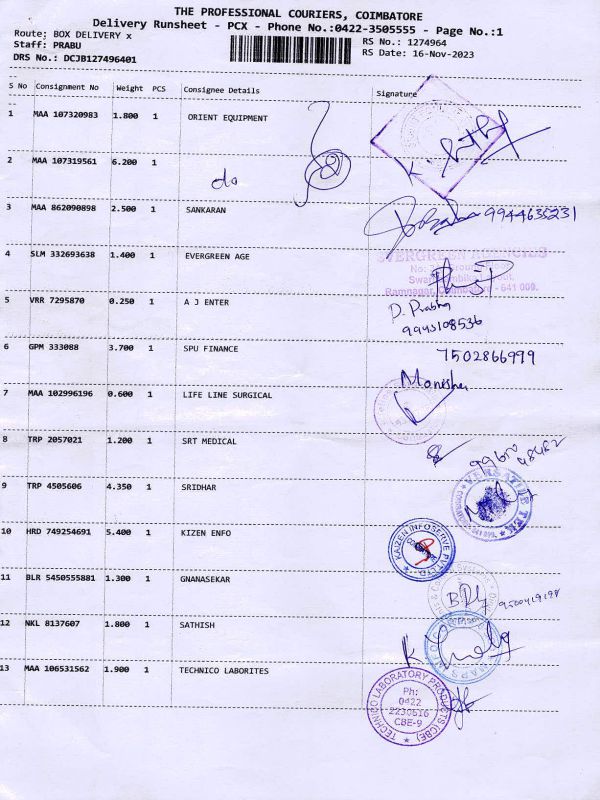 THE PROFESSIONAL COURIERS, COIMBATORE
Delivery Runsheet - PCX - Phone No.:0422-3505555 - Page No.:1
Route: BOX DELIVERY x RS No.: 1274964
Staff: PRABU RS Date: 16-Nov-2023
DRS No.: DCJB127496401
S No Consignment No Weight PCS Consignee Details Signature
1 MAA 107320983 1.800 1 ORIENT EQUIPMENT
2 MAA 107319561 6.200 1 do
3 MAA 862090898 2.500 1 SANKARAN 9944635231
4 SLM 332693638 1.400 1 EVERGREEN AGE
EVERGREEN AGENCIES
Ramnagar, Coimbatore - 641 009.
5 VRR 7295870 0.250 1 A J ENTER D. Prabhu
9943108536
6 GPM 333088 3.700 1 SPU FINANCE 7502866979
7 MAA 102996196 0.600 1 LIFE LINE SURGICAL
8 TRP 2057021 1.200 1 SRT MEDICAL
9 TRP 4505606 4.350 1 SRIDHAR
10 HRD 749254691 5.400 1 KIZEN ENFO
KAIZEN INFOSERVE PVT LTD
11 BLR 5450555881 1.300 1 GNANASEKAR
12 NKL 8137607 1.800 1 SATHISH
13 MAA 106531562 1.900 1 TECHNICO LABORITES
TECHNICO LABORATORY PRODUCTS (CBE)
Ph:
0422
2230616
CBE-9